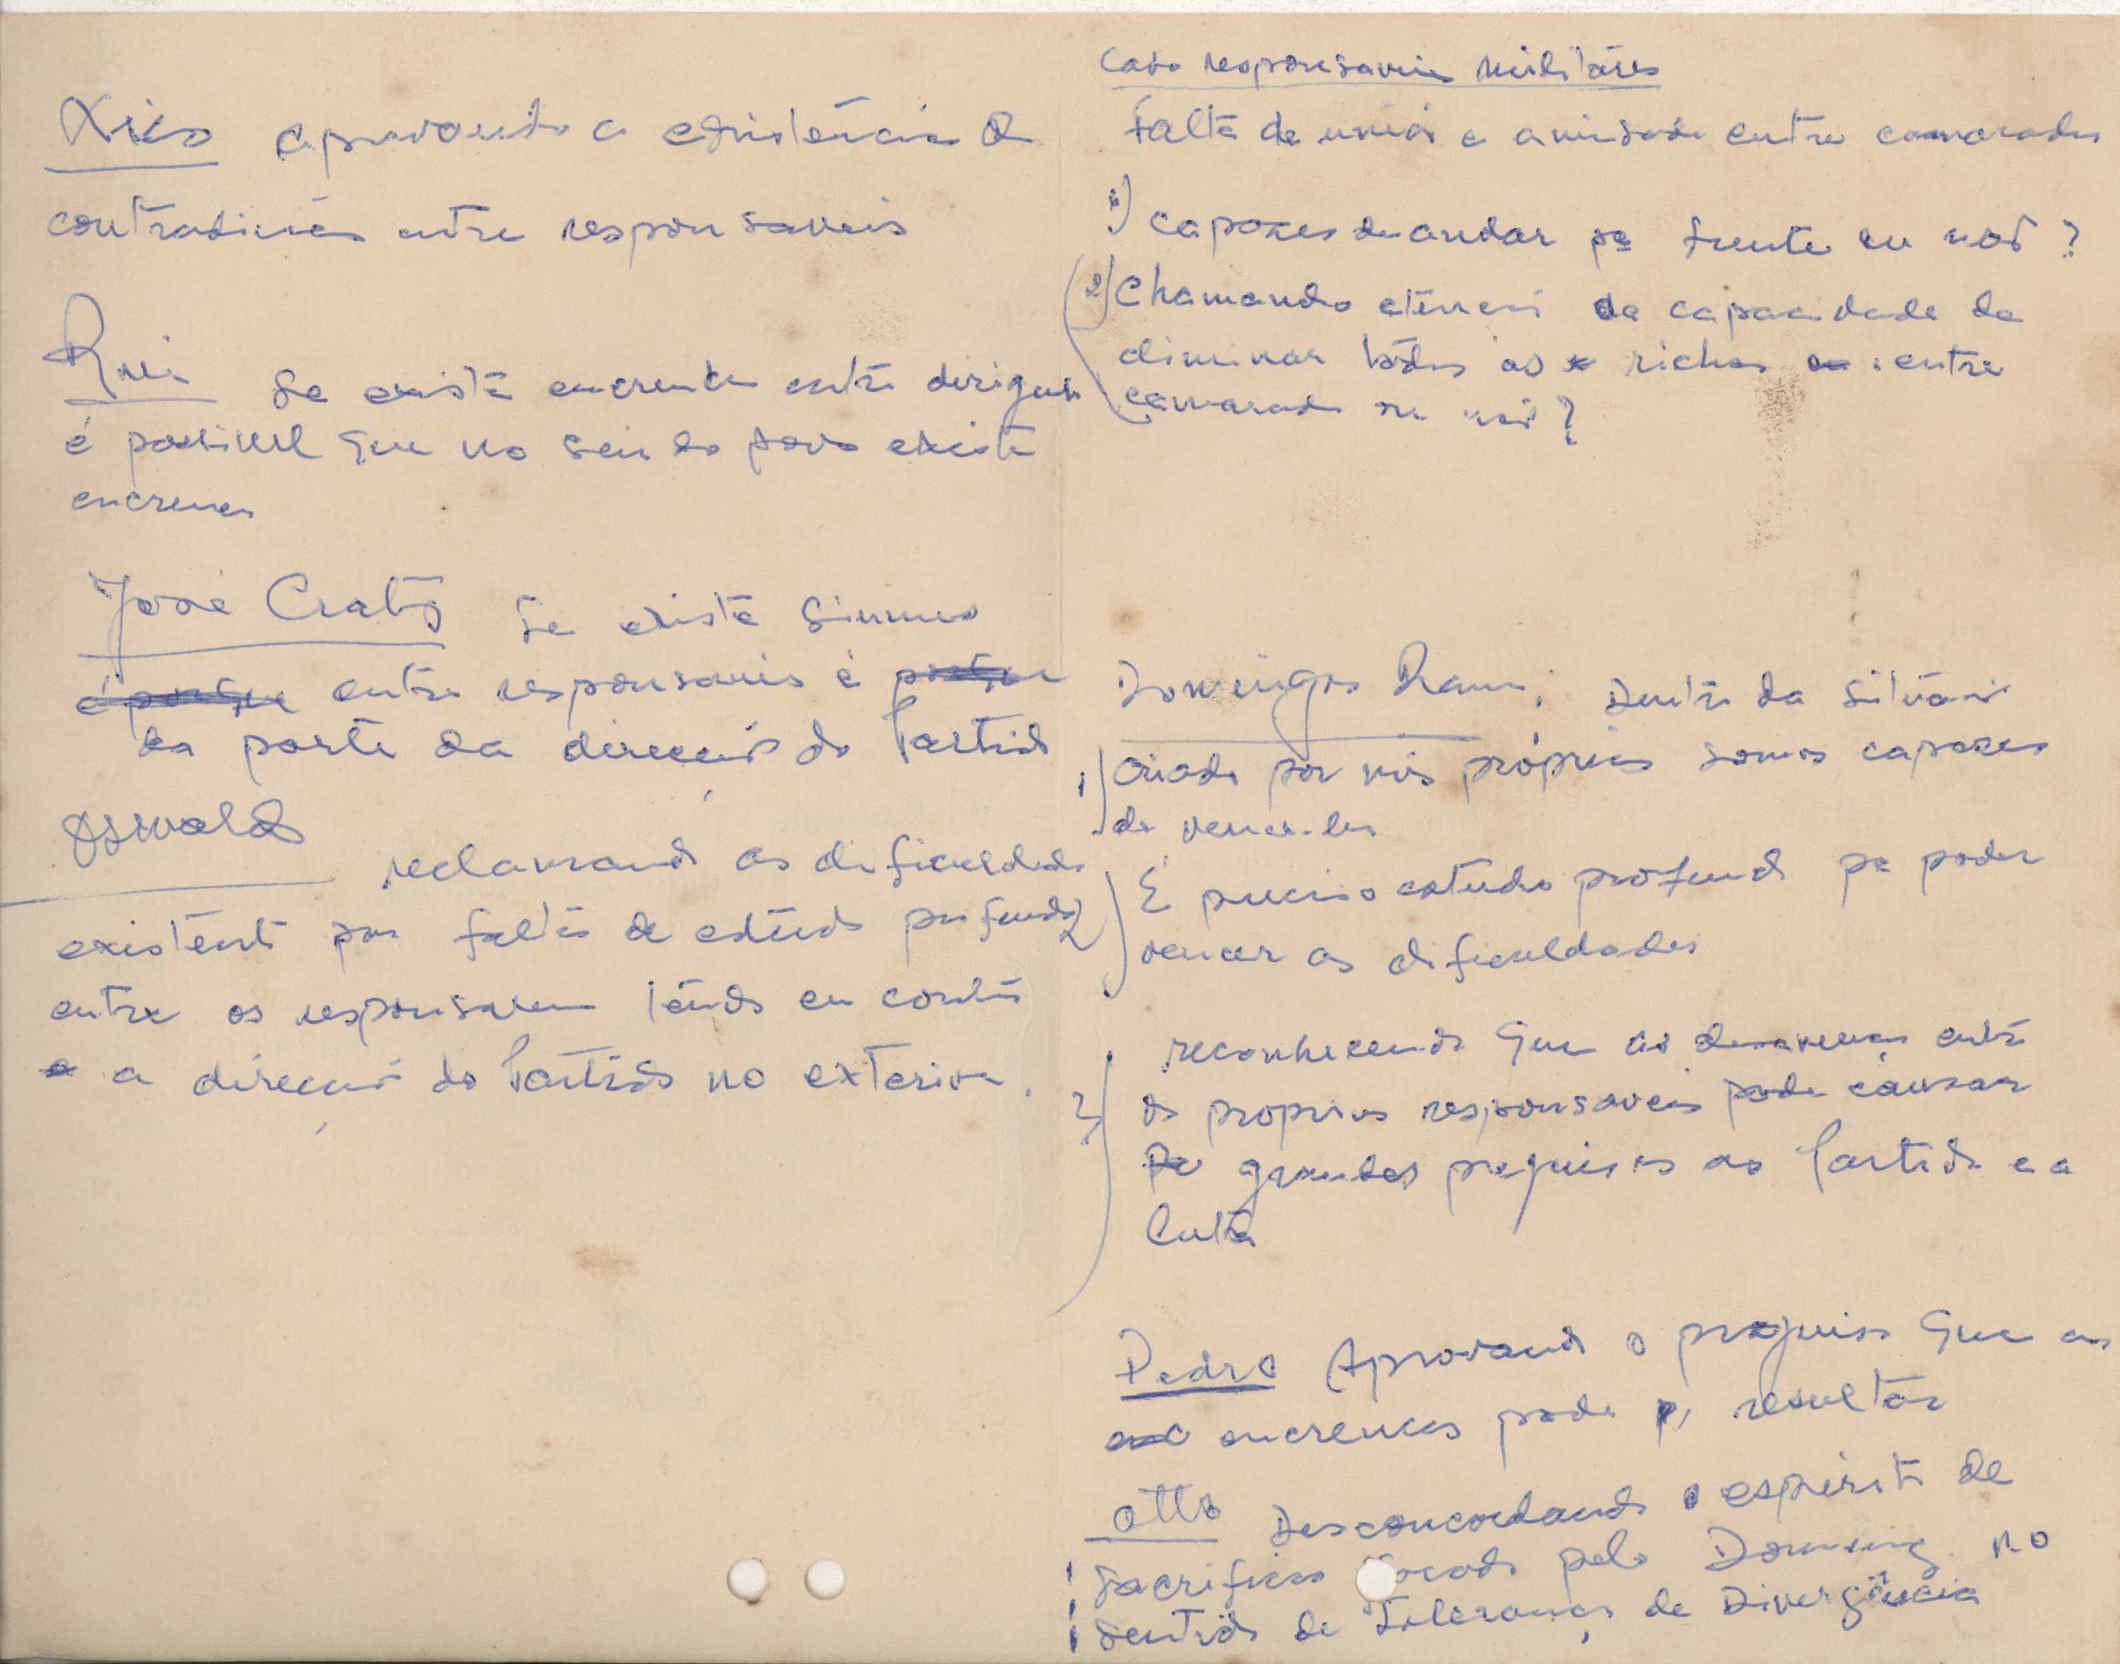 Xico aprovando a existência de
contradições entre responsaveis
Rui se existe encrenca entre dirigente
é possivel que no seio do povo existe
encrenca
José Crató se existe
entre responsaveis é
da parte da direcção do Partido
Oswaldo
reclamando as dificuldades
existente por falta de estudo profundo
entre os responsaveis tendo em conta
a direcção do Partido no exterior.
Caso responsaveis militares
Falta de união e amisade entre camaradas
1) Capazes de andar pª frente ou não?
2) Chamando atenção da capacidade de
eliminar todas as richas entre
camarada ou não?
Domingos Ramos, Dentro da situação
1) criada por nós próprios somos capazes
de vence-las
2) É preciso estudo profundo pª poder
vencer as dificuldades
reconhecendo que as desavenças entre
3) os proprios responsaveis pode causar
grandes prejuisos ao Partido e a
Luta
Pedro Aprovando o prejuiso que as
encrencas pode resultar
Otto Desconcordando o espirito de
sacrificio focado pelo Domingos no
sentido de Tolerança de Divergência